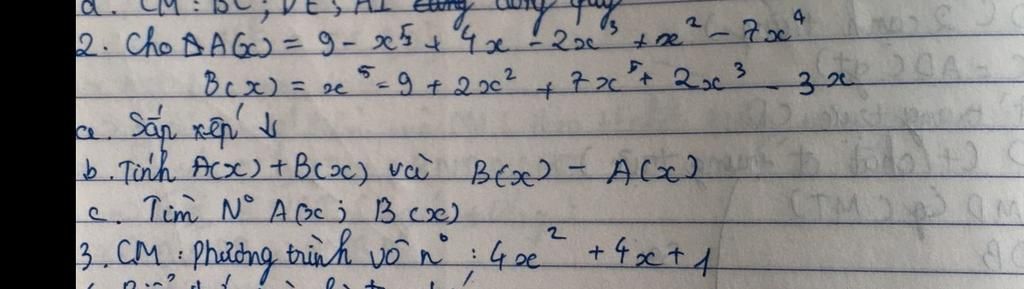 2. Cho A(x) = 9 - x⁵ + 4x - 2x³ + x² - 7x⁴
B(x) = x⁵ - 9 + 2x² + 7x⁵ + 2x³ - 3x
a. Sắp xếp ↓
b. Tính A(x) + B(x) và B(x) - A(x)
c. Tìm N° A(x; B(x)
3. CM : phương trình vô n° : 4x² + 4x + 1